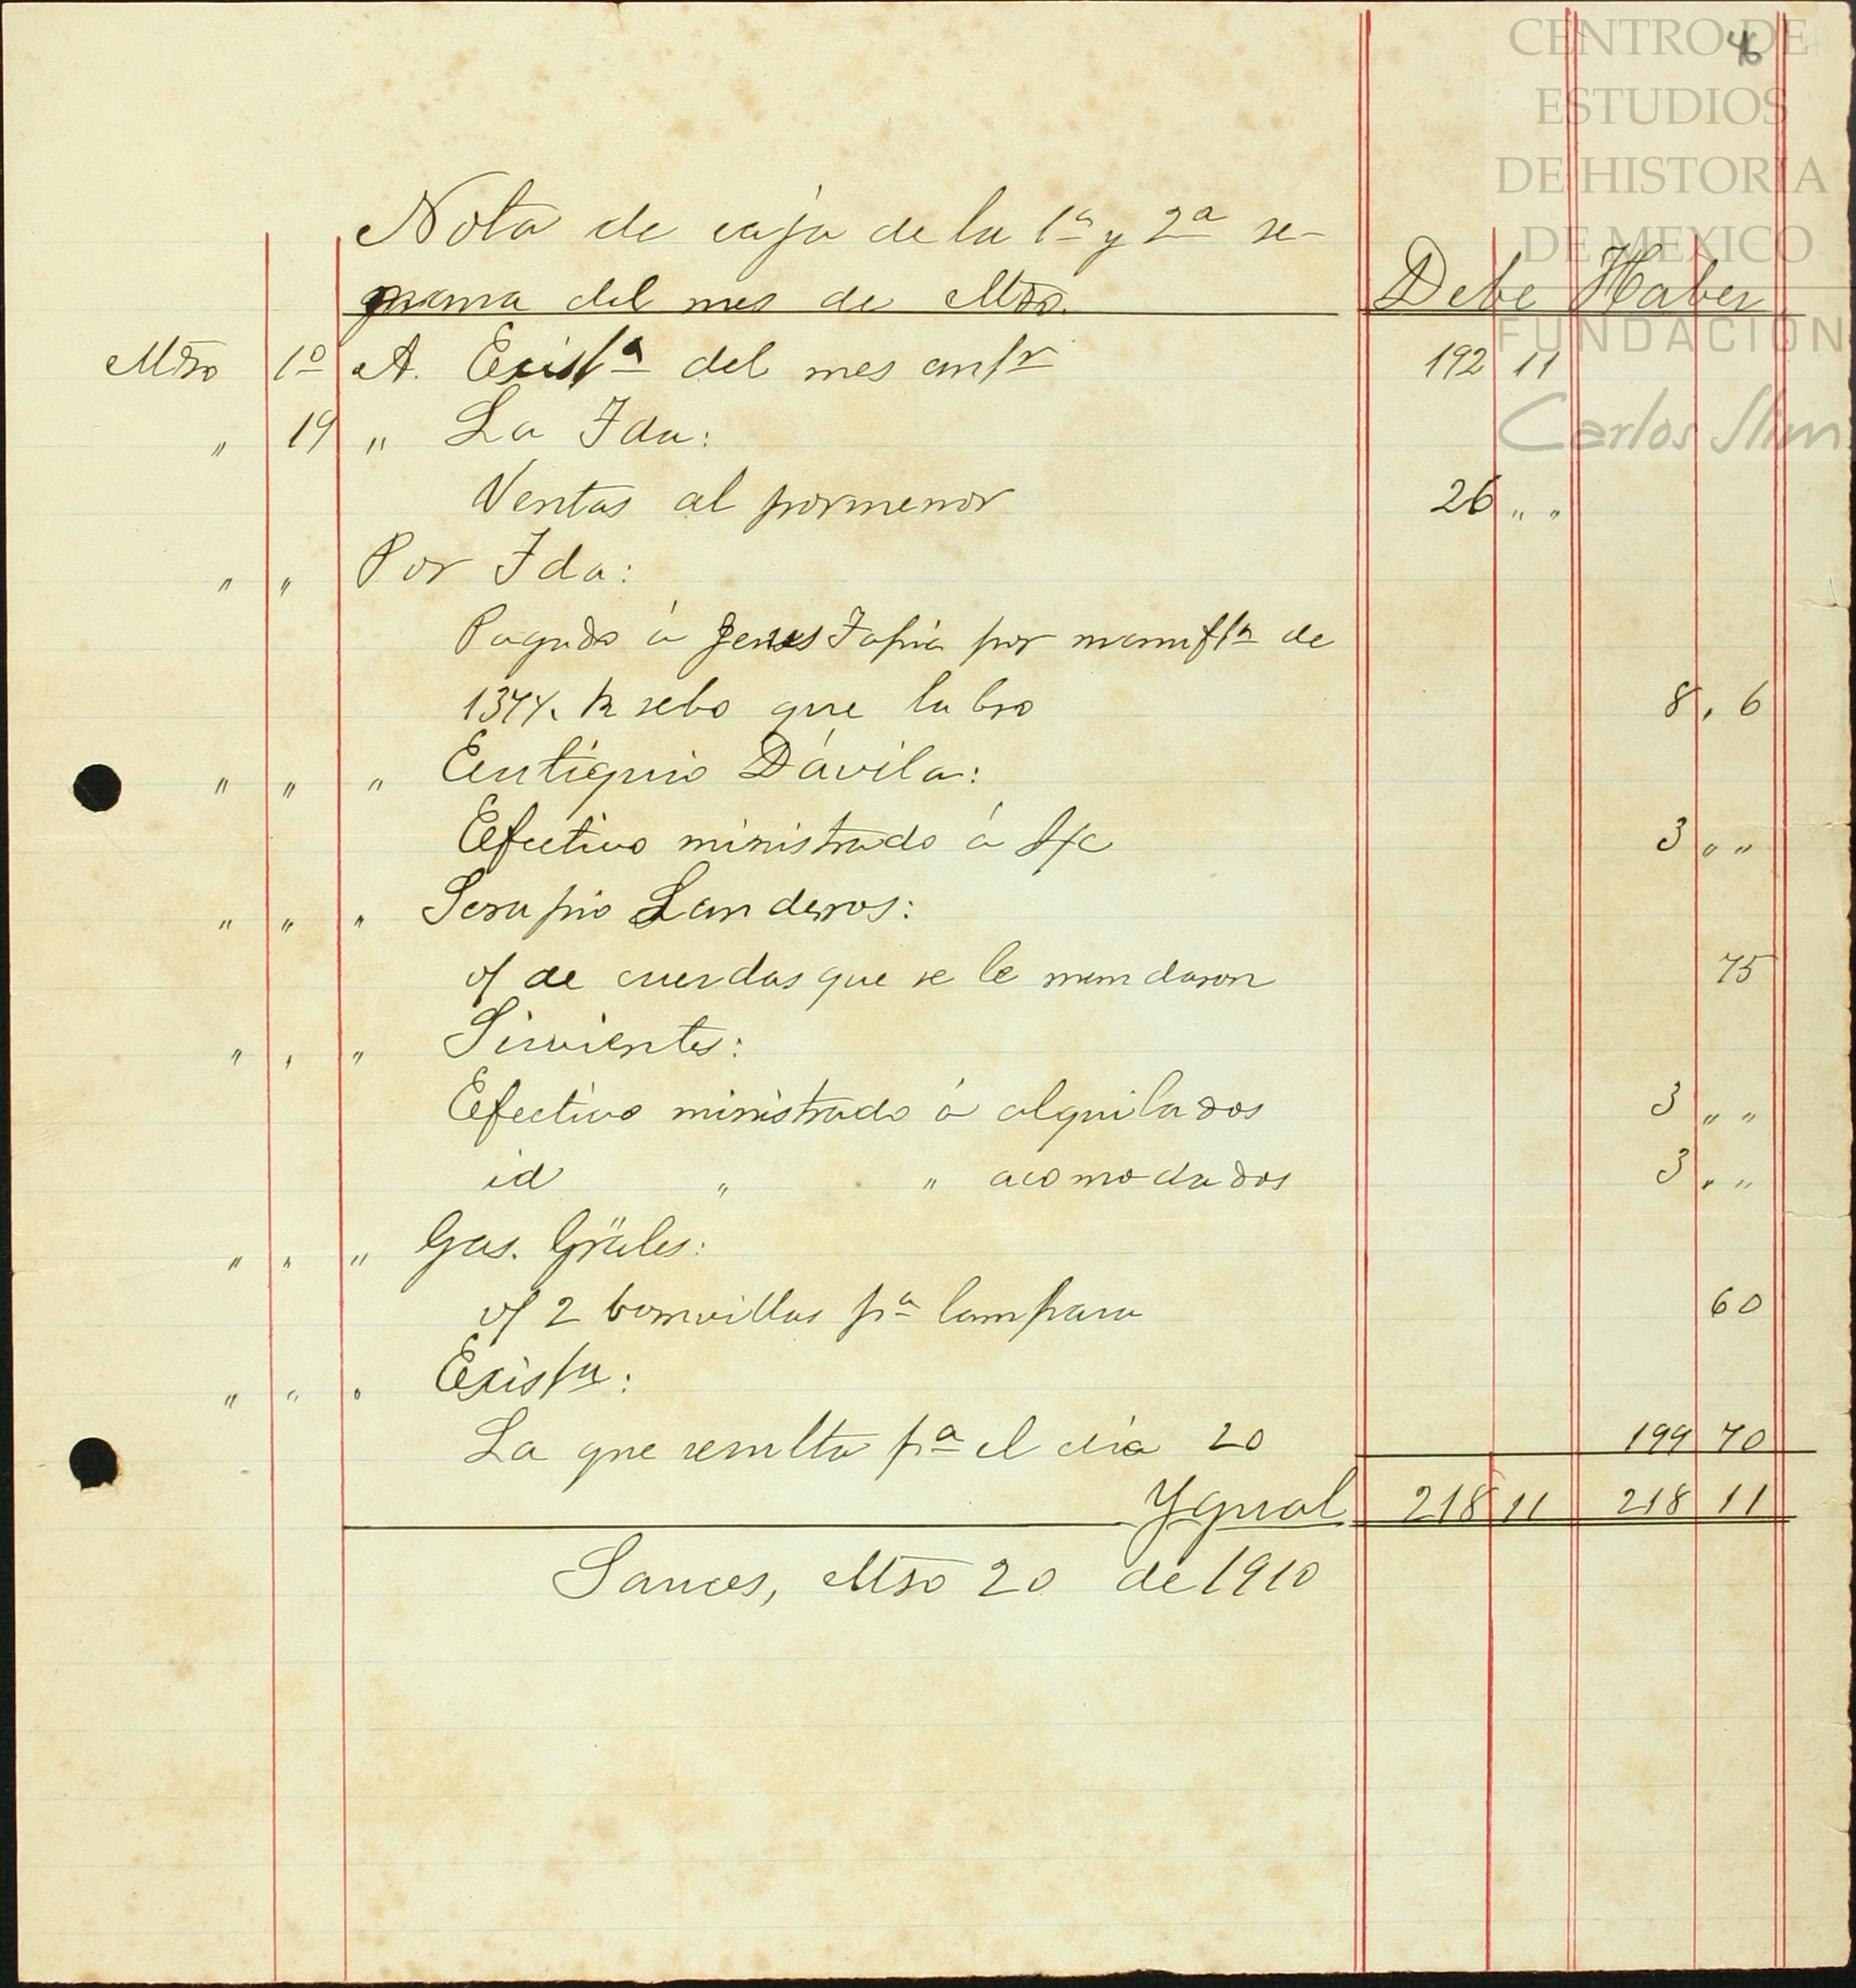 46
CENTRO DE
ESTUDIOS
DE HISTORIA
DE MEXICO
FUNDACIÓN
Carlos Slim
Nota de caja de la 1ª y 2ª se-
mana del mes de Mzo. Debe Haber
Mzo 1º A. Existª del mes antr 192 11
" 19 " La Fda:
Ventas al pormenor 26 " "
" " Por Fda:
Pagado á Jesus Tapia por manuftª de
1344. K sebo que labro 8 " 6
" " " Eutiquio Dávila:
Efectivo ministrado á S/c 3 " "
" " " Serapio Landeros:
v/ de cuerdas que se le mandaron 75
" " " Sirvientes:
Efectivo ministrado á alquilados 3 " "
id " " acomodados 3 " "
" " " Gas. Gräles:
v/ 2 bomvillas pª lampara 60
" " " Existª:
La que resulta pª el dia 20 199 70
Ygual 218 11 218 11
Sauces, Mzo 20 de 1910